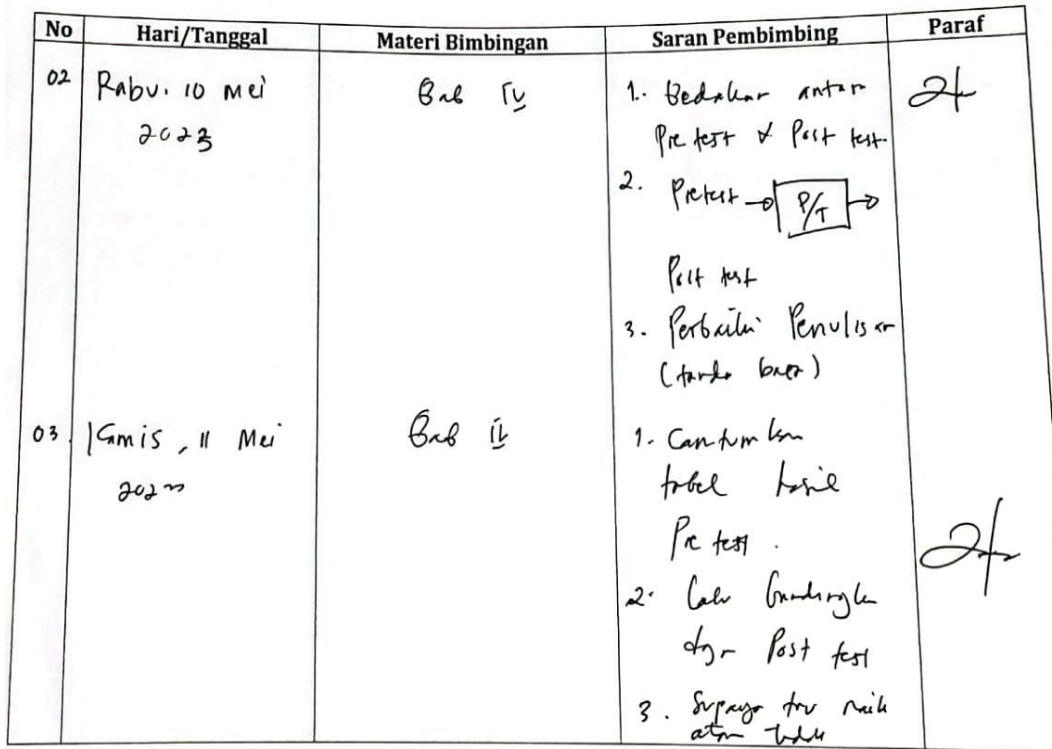 No Hari/Tanggal Materi Bimbingan Saran Pembimbing Paraf
02 Rabu. 10 Mei Bab IV 1. Bedakan antar
2023 Pre test & Post test
2. Pretest → P/T →
Post test
3. Perbaiki Penulisan
(tanda baca)
03 Kamis, 11 Mei Bab IV 1. Cantumkan
2023 tabel hasil
Pre test.
2. Lalu bandingkan
dgn Post test
3. Supaya tau naik
atau tidak